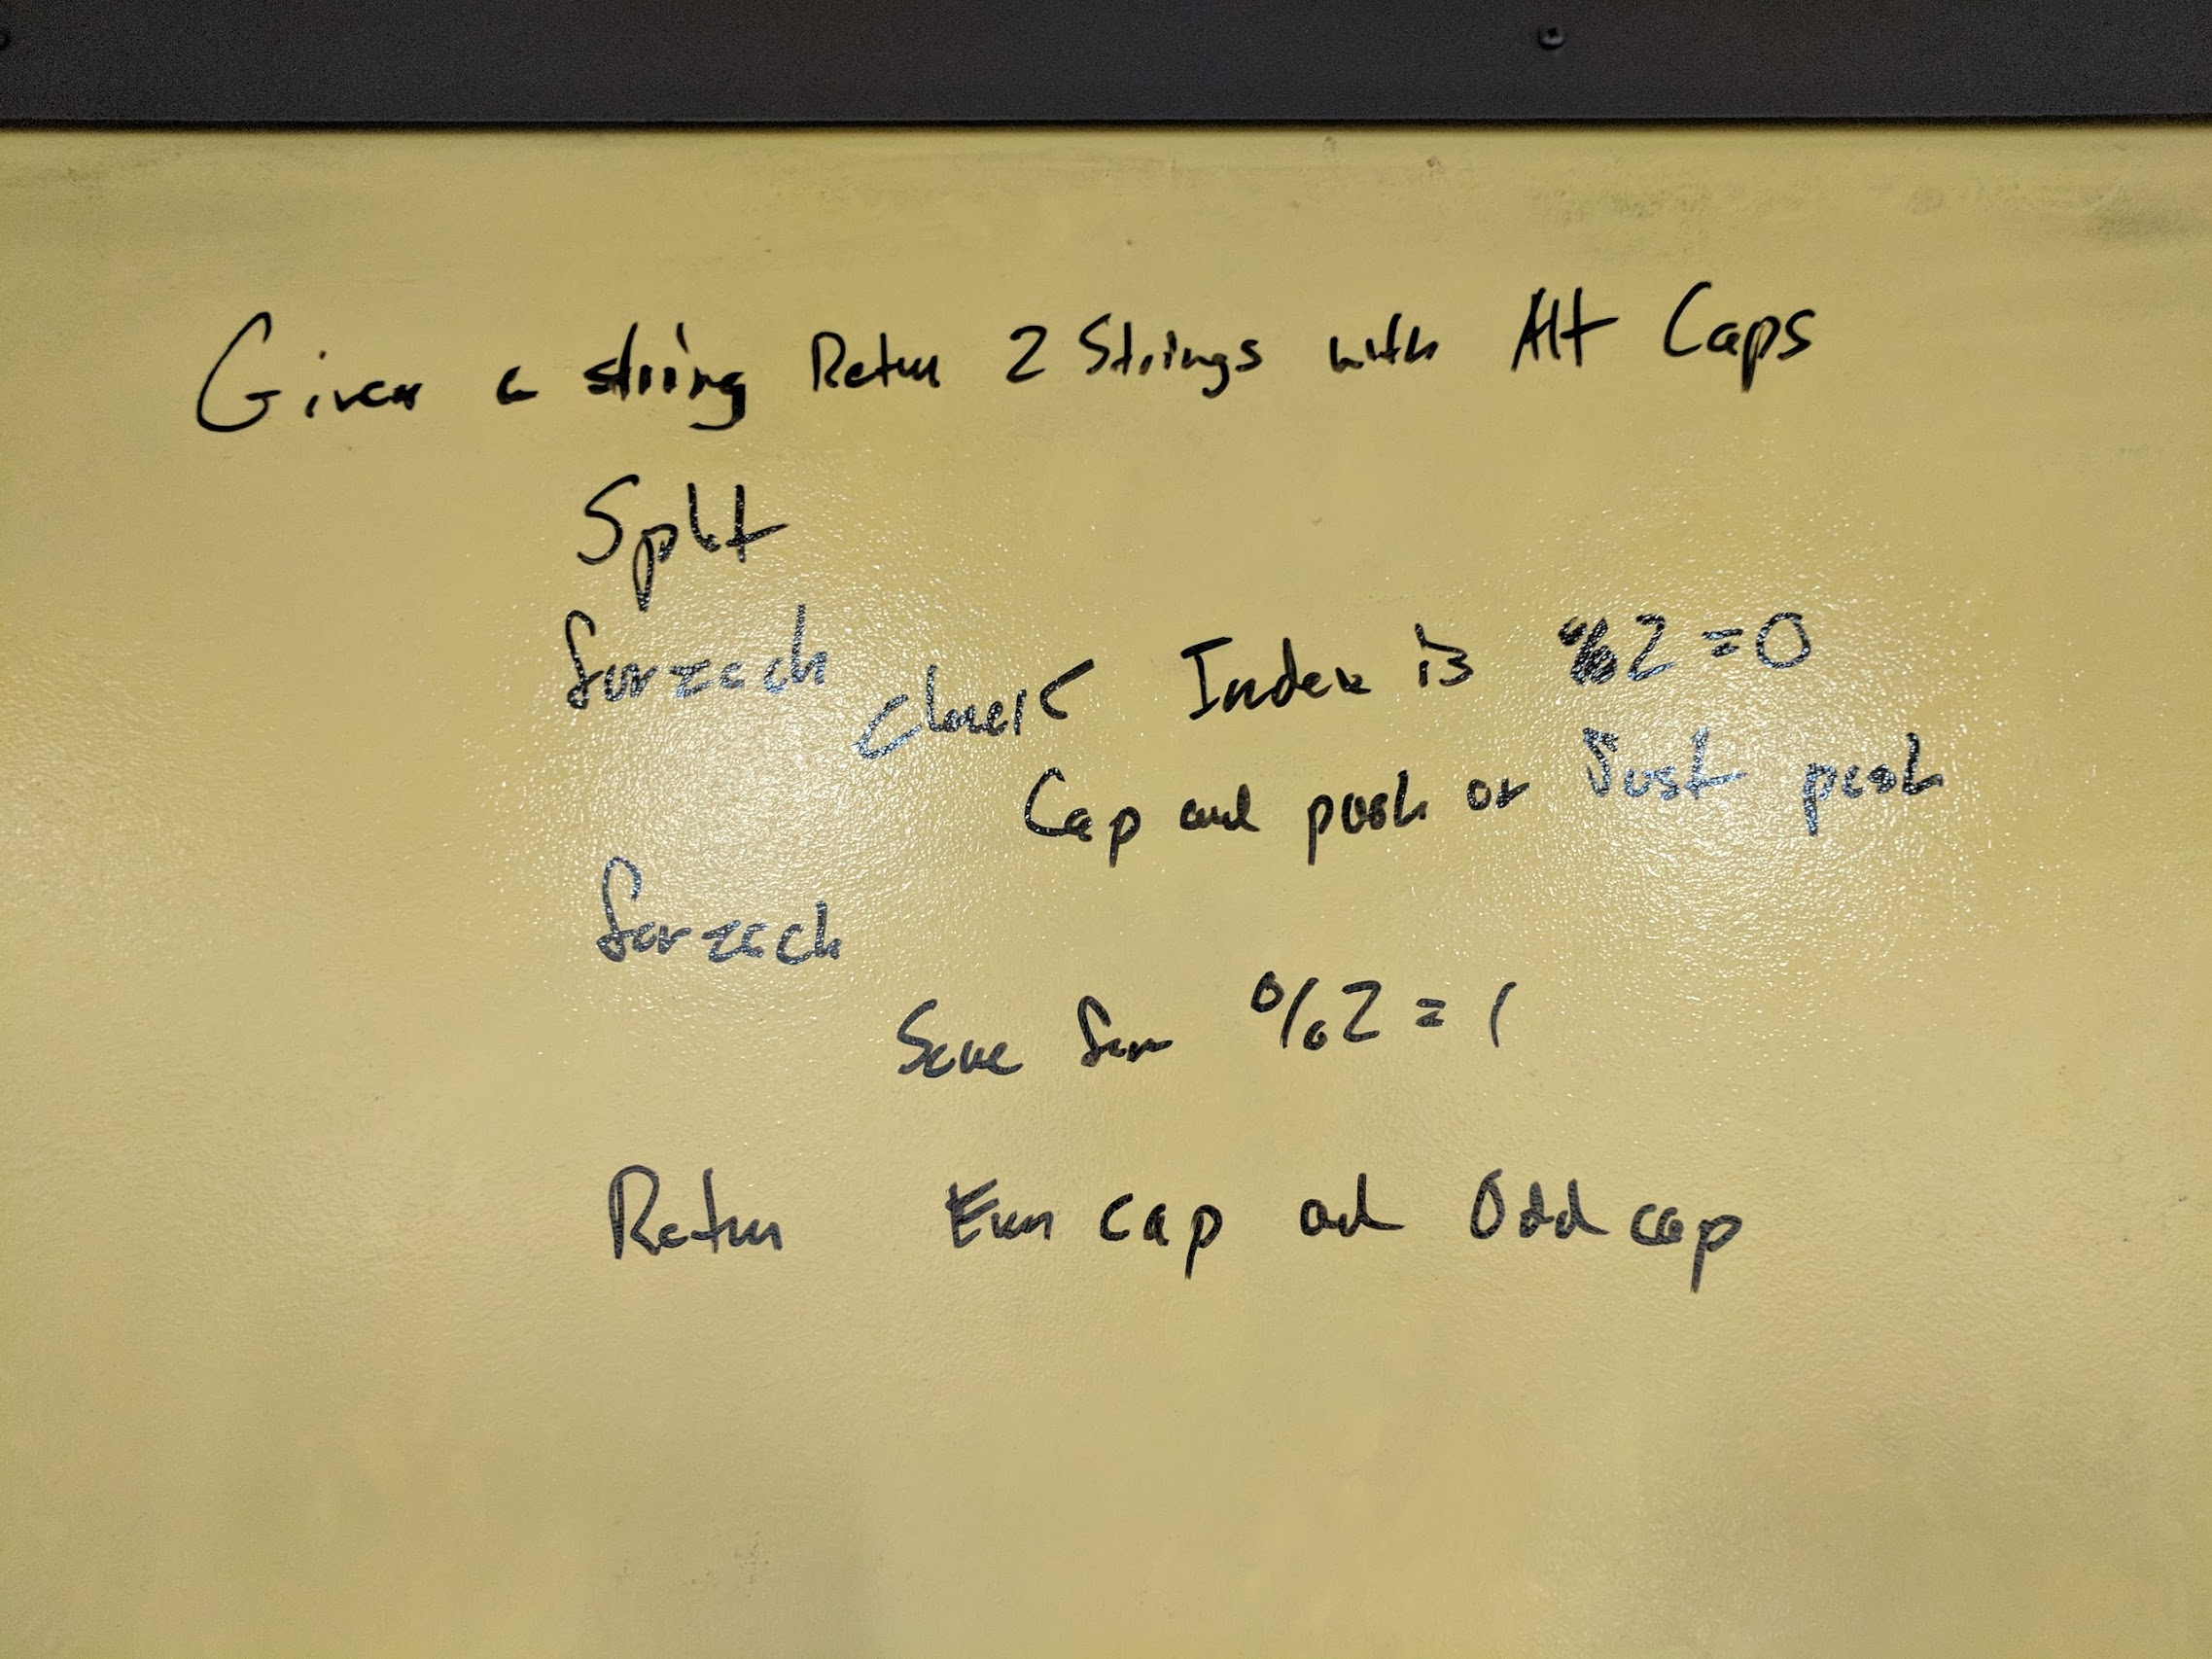 Given a string Return 2 Strings with Alt Caps
Split
for each
check Index is %2=0
Cap and push or Just push
for each
Same for %2=1
Return Even cap and Odd cap